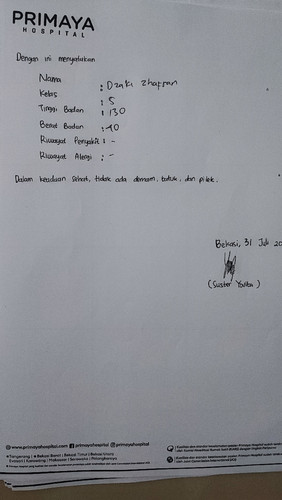 PRIMAYA
HOSPITAL
Dengan ini menyatakan
Nama : Dzaki Zhafran
Kelas : 5
Tinggi Badan : 130
Berat Badan : 40
Riwayat Penyakit : -
Riwayat Alergi : -
Dalam keadaan Sehat, tidak ada demam, batuk, dan pilek.
Bekasi, 31 Juli 20
(Suster Yunita)
www.primayahospital.com primayahospital @primayahospital